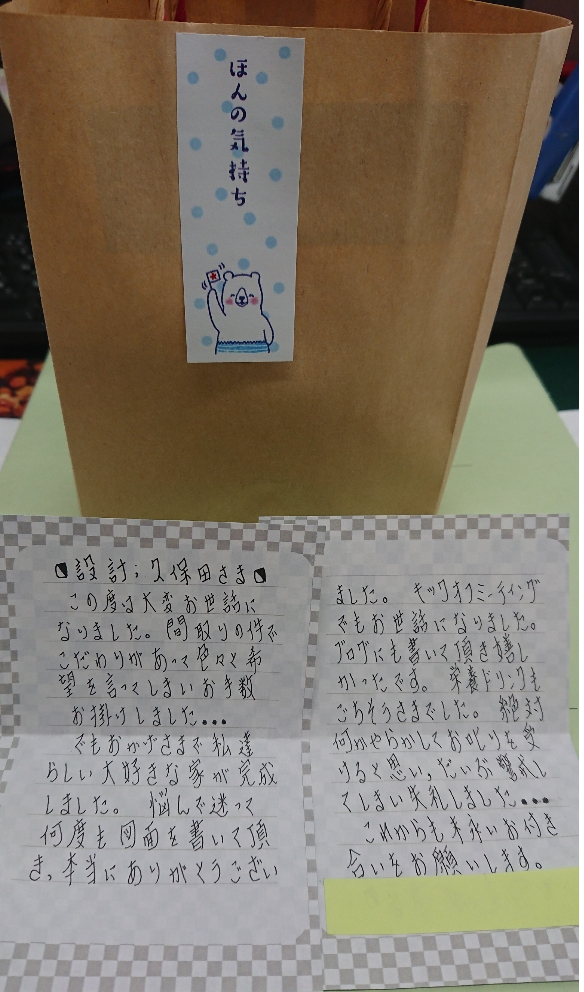 ほんの気持ち
設計；久保田さま
この度は大変お世話に
なりました。間取りの件で
こだわりがあって色々と希
望を言ってしまいお手数
お掛けしました...
でもおかげさまで私達
らしい大好きな家が完成
しました。悩んで迷って
何度も図面を書いて頂
き、本当にありがとうござい
ました。キックオフミーティング
でもお世話になりました。
ブログにも書いて頂き嬉し
かったです。栄養ドリンクも
ごちそうさまでした。絶対
何かやらかしておしかりを受
けると思い、だいぶ警戒し
てしまい失礼しました...
これからも末永いお付き
合いをお願いします。